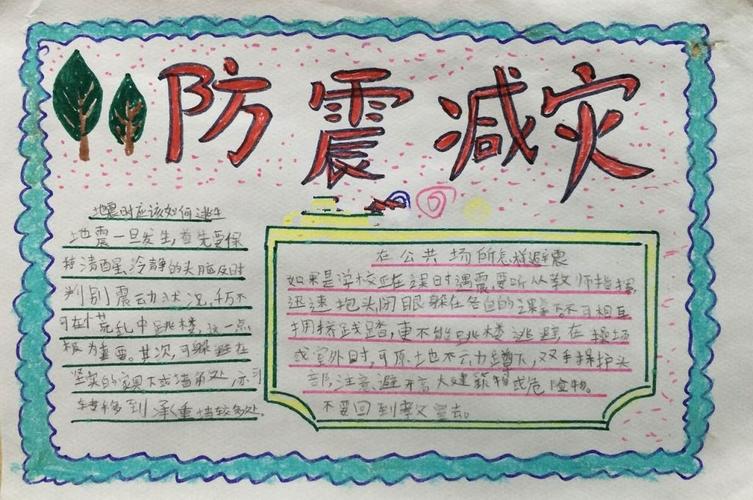 防震减灾
地震时应该如何逃生
地震一旦发生,首先要保
持清醒、冷静的头脑及时
判别震动状况,千万不
可在慌乱中跳楼,这一点
极为重要。其次,可躲避在
坚实的家具下或墙角处,亦可
转移到承重墙较多处
在公共场所怎样避震
如果是学校正在课时遇震,要听从教师指挥,
迅速抱头闭眼躲在各自的课桌下不可相互
拥挤践踏,更不能跳楼逃避,在操场
或室外时,可原地不动蹲下,双手保护头
部,注意避开高大建筑物或危险物。
不要回到教室去。